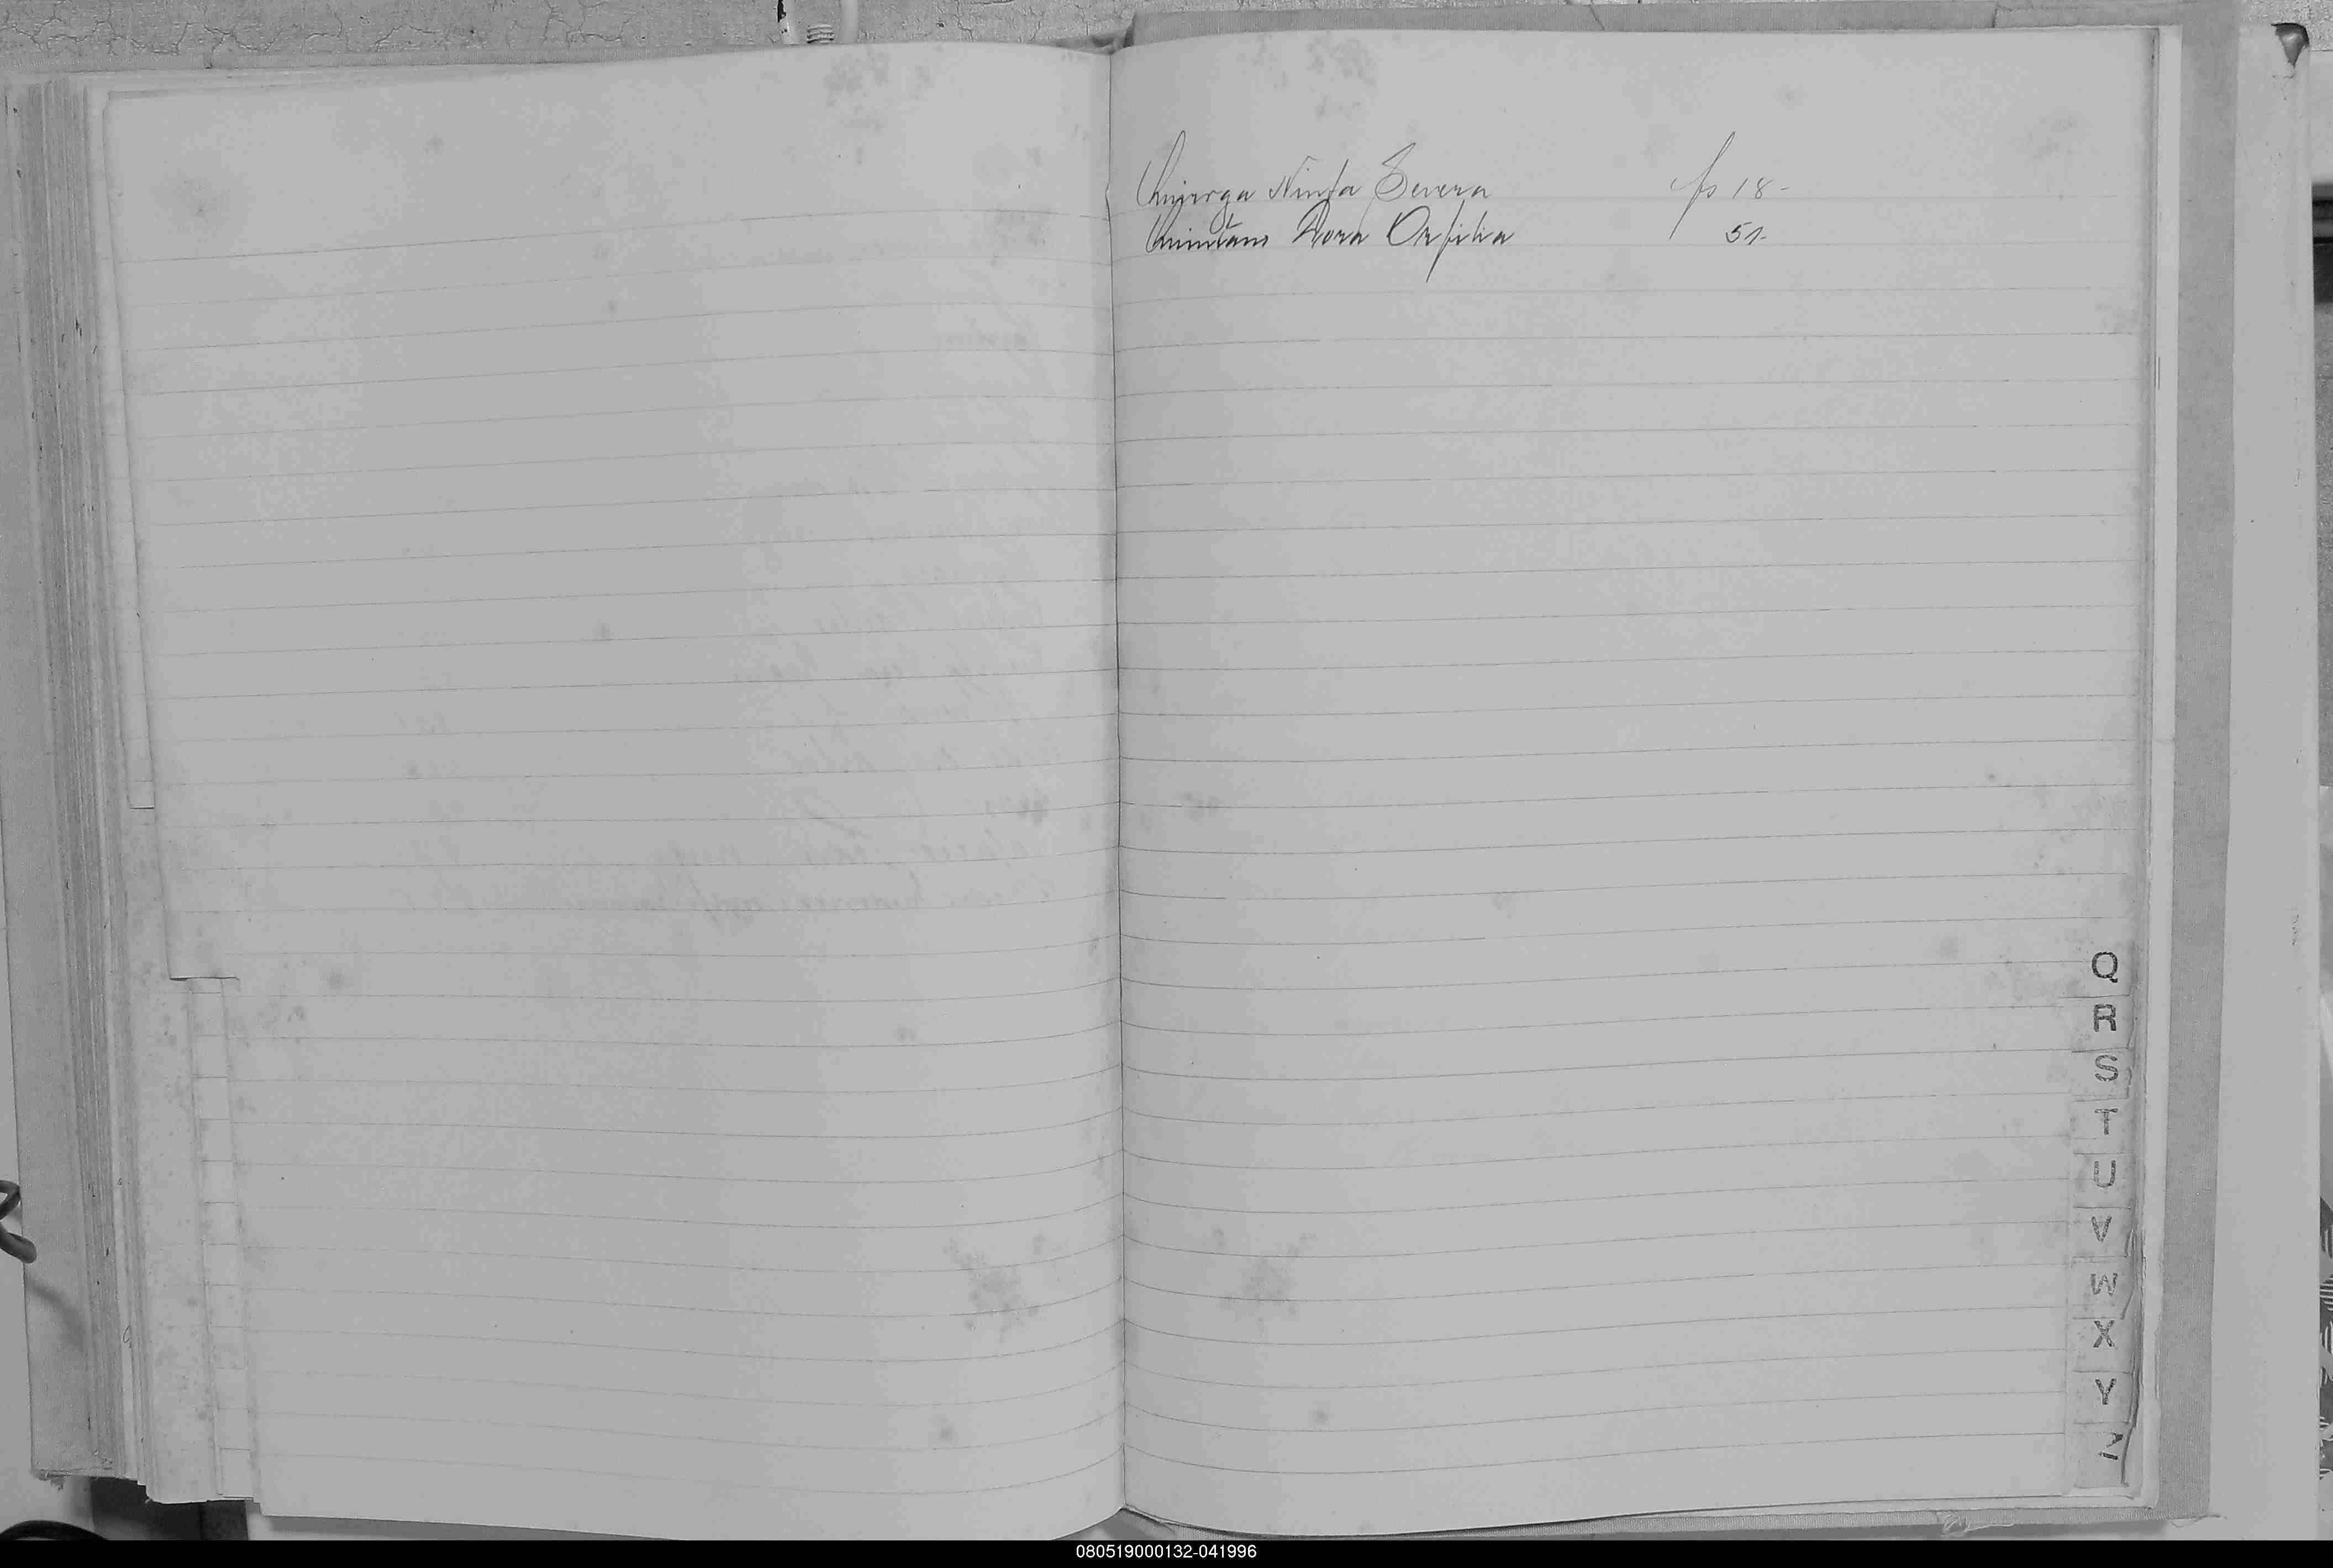 Quiroga Ninfa Severa fs 18-
Quintana Dora Orfilia 51-
Q
R
S
T
U
V
W
X
Y
Z
080519000132-041996